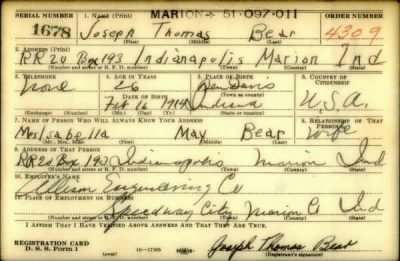 SERIAL NUMBER 1. NAME (Print) MARION + 51-097-011 ORDER NUMBER
1678 Joseph Thomas Bear 4309
(First) (Middle) (Last)
2. ADDRESS (Print)
RR 20 Box 193 Indianapolis Marion Ind
(Number and street or R. F. D. number) (Town) (County) (State)
3. TELEPHONE 4. AGE IN YEARS 5. PLACE OF BIRTH 6. COUNTRY OF CITIZENSHIP
None 26 Ben Davis
DATE OF BIRTH
Feb 16 1914 Indiana U.S.A.
(Exchange) (Number) (Mo.) (Day) (Yr.) (State or country)
7. NAME OF PERSON WHO WILL ALWAYS KNOW YOUR ADDRESS 8. RELATIONSHIP OF THAT PERSON
Mrs Isabella May Bear Wife
(Mr., Mrs., Miss) (First) (Middle) (Last)
9. ADDRESS OF THAT PERSON
RR 20 Box 193 Indianapolis Marion Ind
(Number and street or R. F. D. number) (Town) (County) (State)
10. EMPLOYER'S NAME
Allison Engineering Co
11. PLACE OF EMPLOYMENT OR BUSINESS
Speedway City Marion Co Ind
(Number and street or R. F. D. number) (Town) (County) (State)
I AFFIRM THAT I HAVE VERIFIED ABOVE ANSWERS AND THAT THEY ARE TRUE.
REGISTRATION CARD
D. S. S. Form 1 16-17105 Joseph Thomas Bear
(Registrant's signature)